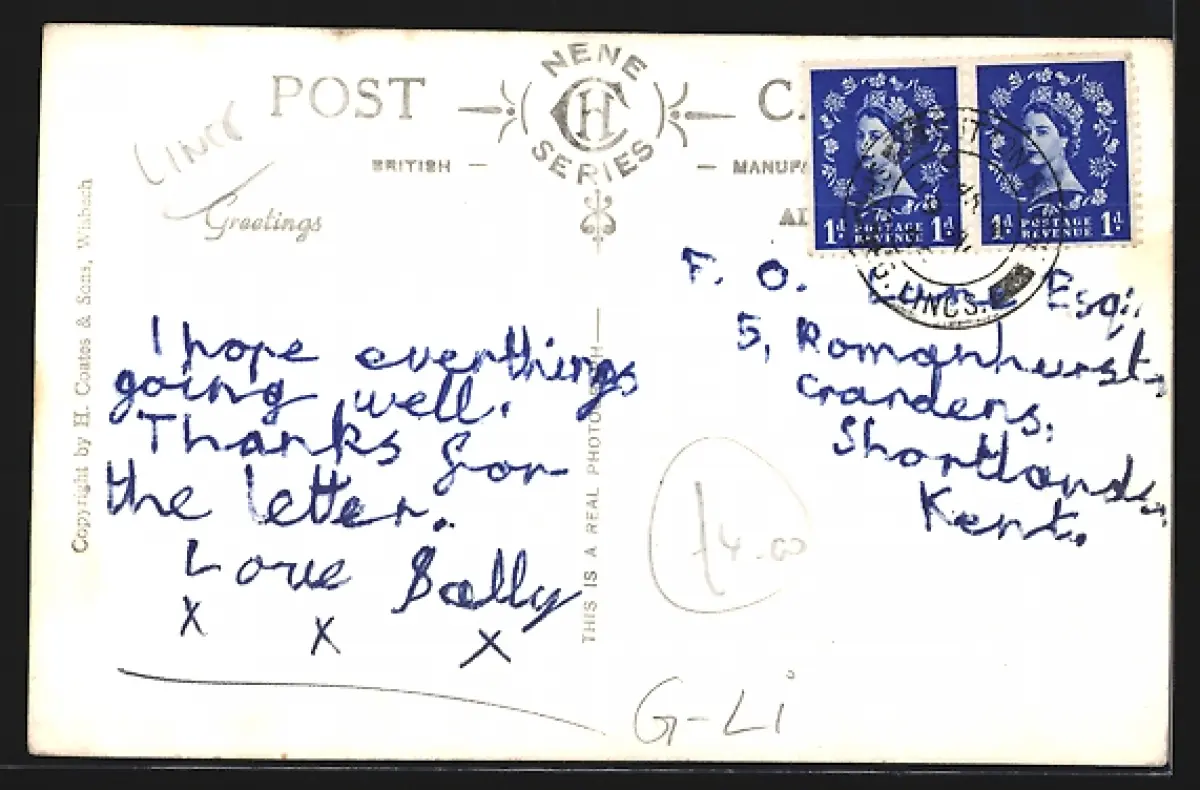 NENE
CH
SERIES
POST
BRITISH
MANUFA
Greetings
Copyright by H. Coates & Sons, Wisbech
THIS IS A REAL PHOTO
1d. POSTAGE REVENUE 1d.
1d. POSTAGE REVENUE 1d.
LINCS.
I hope everthings
going well.
Thanks for
the letter.
Love Sally
x x x
F. O. Esq;
5, Romanhurst,
Gardens,
Shortlands,
Kent.
£4.00
G-Li